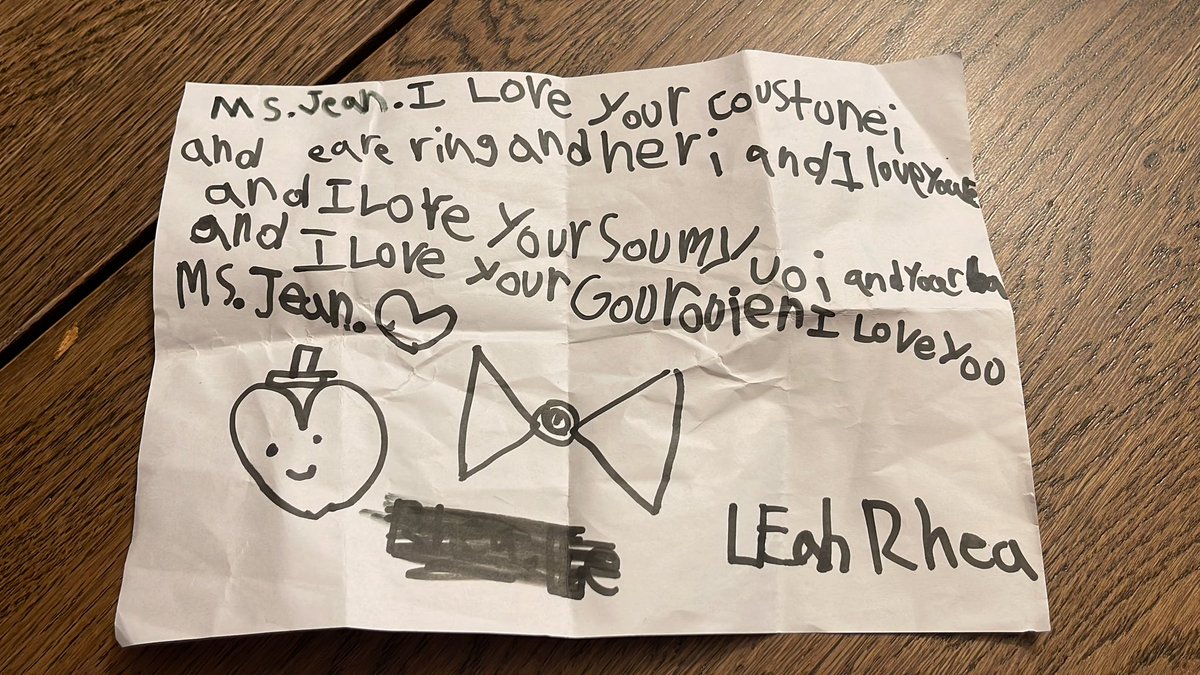 Ms. Jean. I Love your coustune;
and eare ring and her; and I love your
and I Love your Soumy uo; and your
and I Love your Gourouien I Love you
Ms. Jean.
LEah Rhea